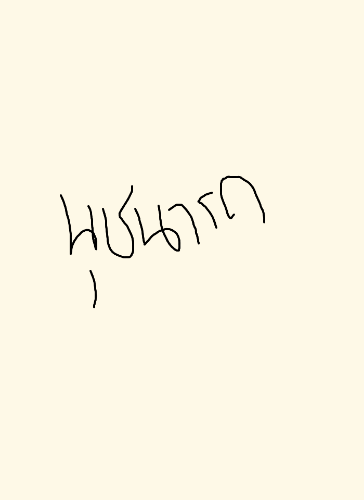 นุชนารถ